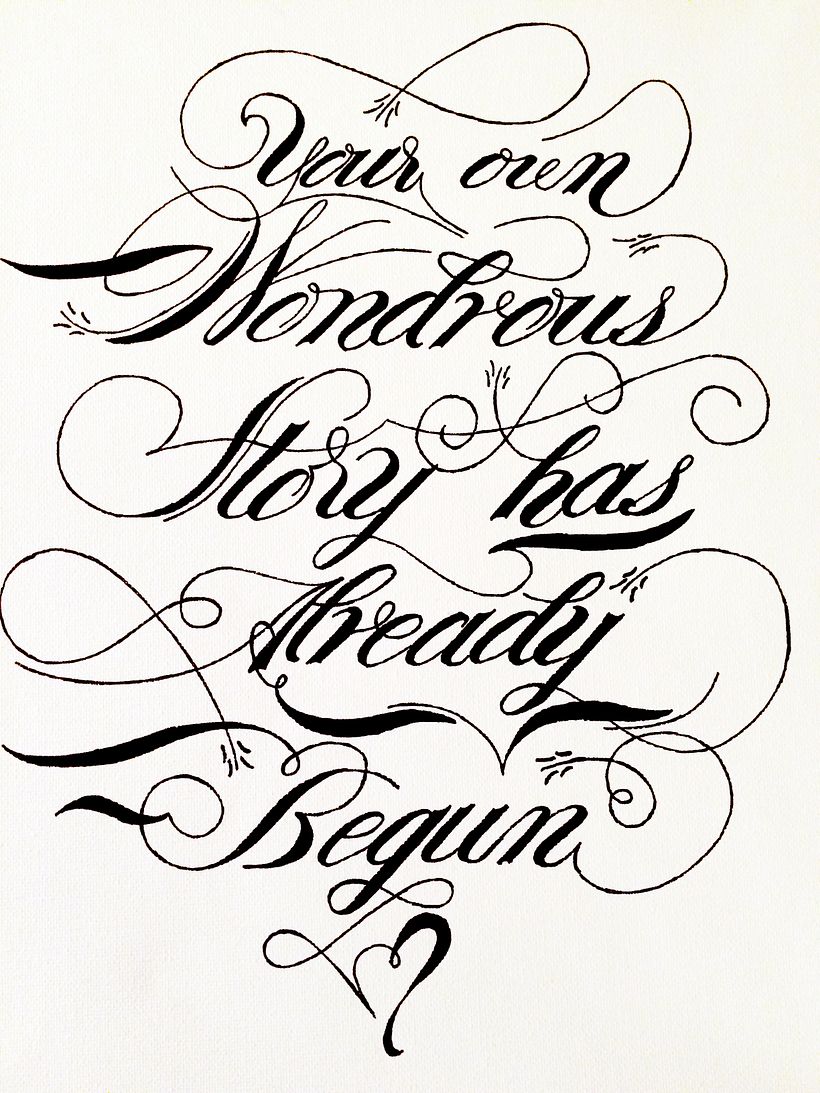 Your own
Wondrous
Story has
Already
Begun